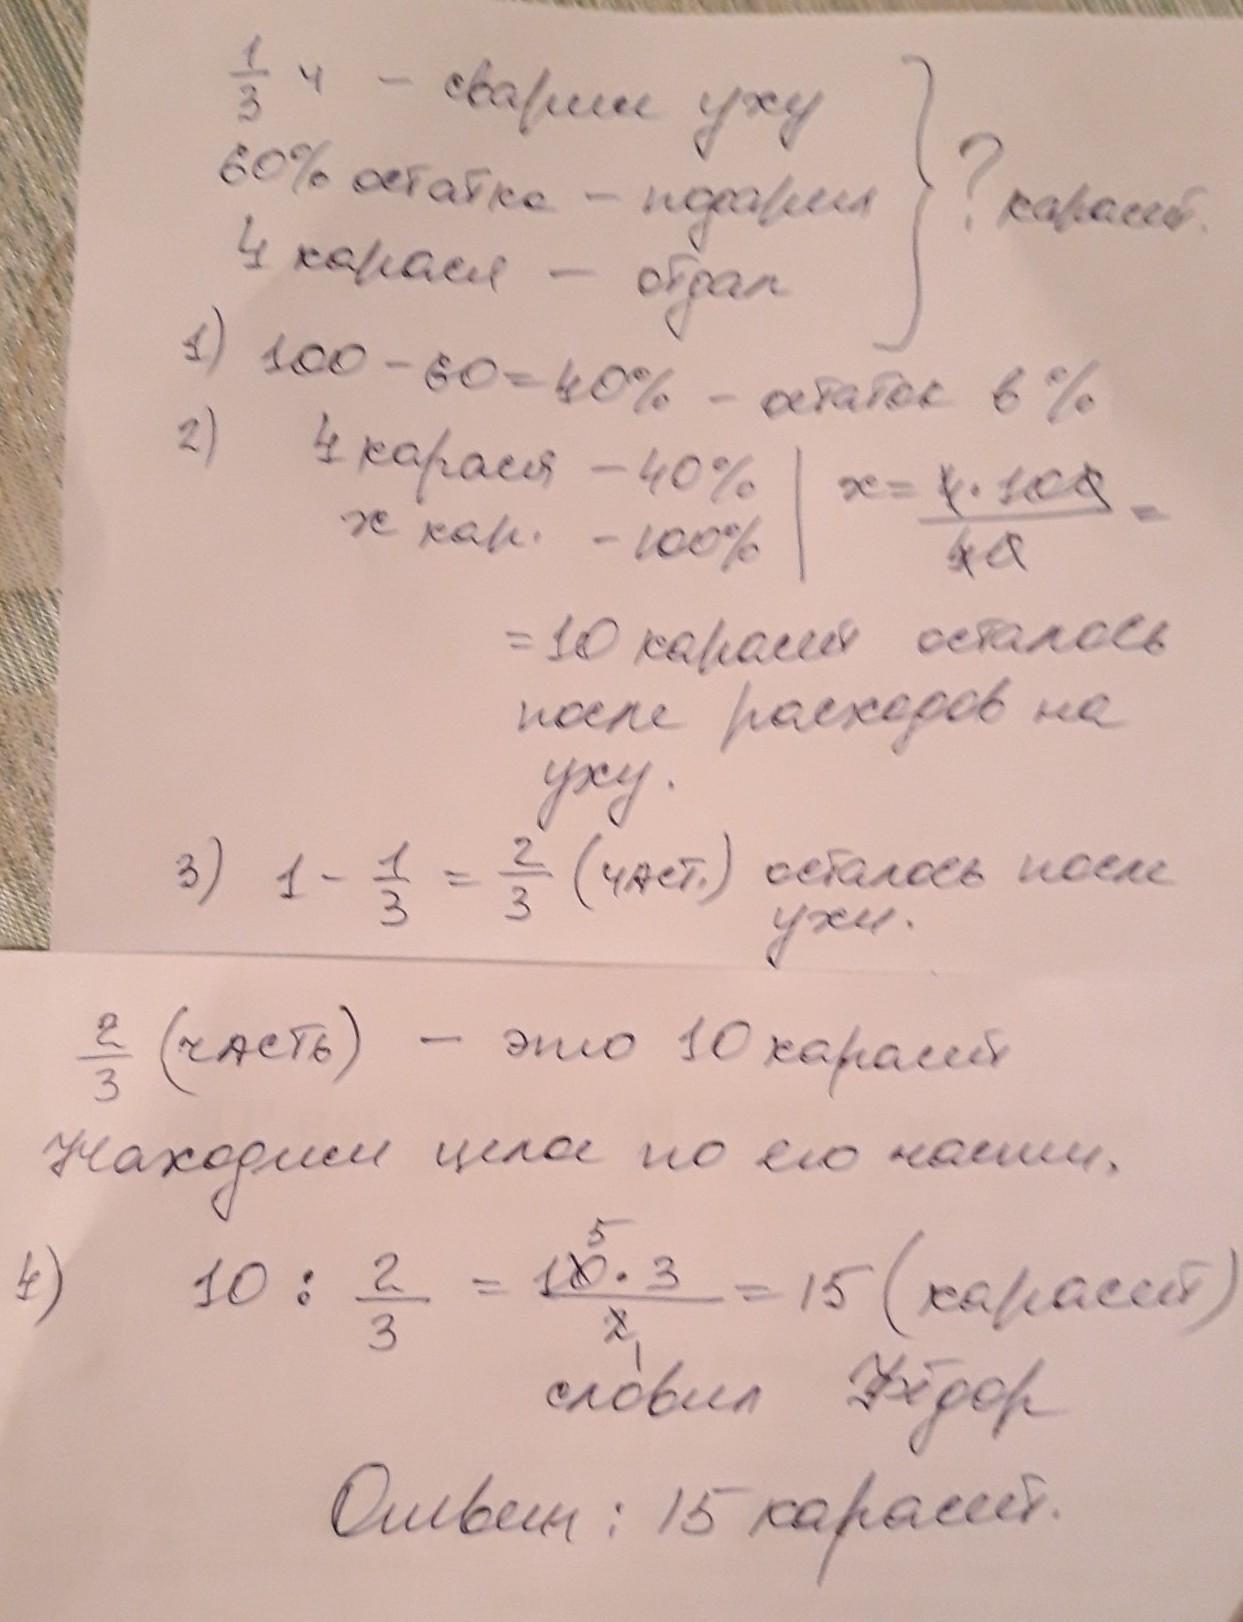 1/3 ч - сварил уху
60% остатка - подарил
4 карася - отдал
} ? карасей.
1) 100 - 60 = 40% - остаток в %
2) 4 карася - 40% | x = 4 · 100 / 40 =
x кар. - 100%
= 10 карасей осталось
после расходов на
уху.
3) 1 - 1/3 = 2/3 (част.) осталось после
ухи.
2/3 (часть) - это 10 карасей
Находим целое по его части.
4) 10 : 2/3 = 10 5 · 3 / 2 1 = 15 (карасей)
словил Фёдор
Ответ: 15 карасей.